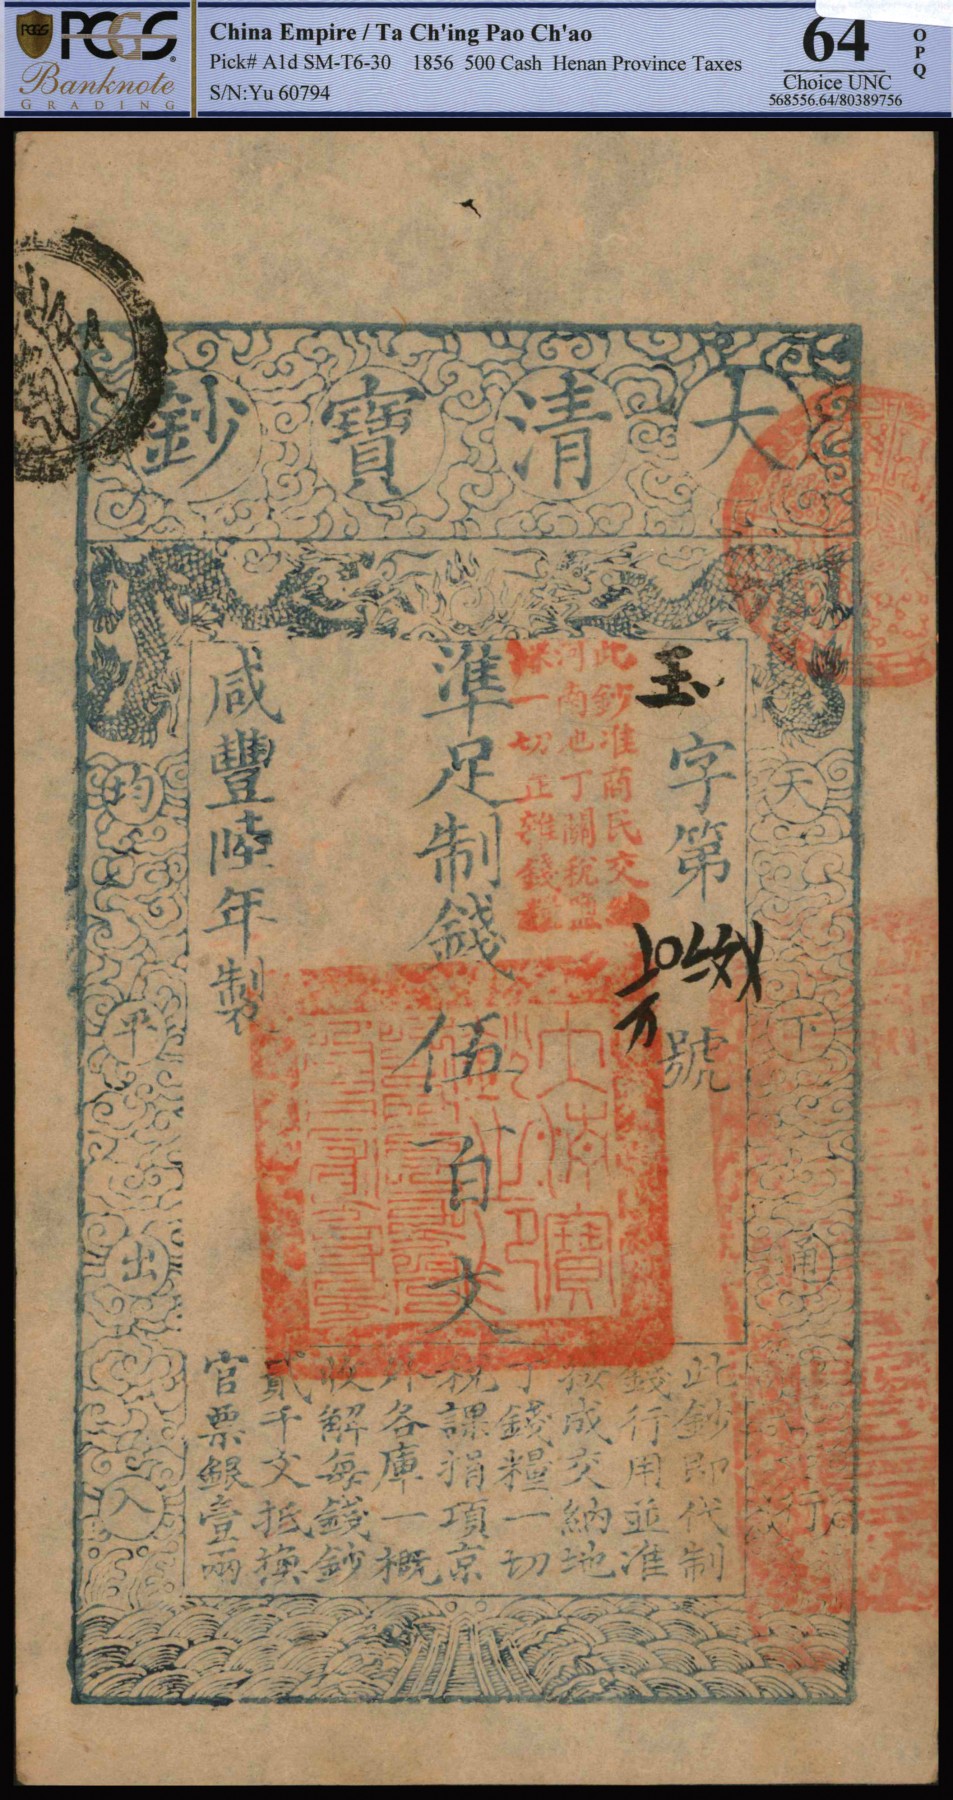 PCGS
Banknote
GRADING
China Empire / Ta Ch'ing Pao Ch'ao
Pick# A1d SM-T6-30 1856 500 Cash Henan Province Taxes
S/N:Yu 60794
64
Choice UNC
568556.64/80389756
OPQ
大清寶鈔
天下通行
均平出入
玉字第
號
此鈔准商民交
河南地丁關稅鹽
課一切正雜錢糧
準足制錢伍百文
咸豐陸年製
大清寶鈔之印
此鈔即代制
錢行用並准
按成交納地
丁錢糧一切
稅課捐項京
外各庫一概
收解每錢鈔
貳千文抵換
官票銀壹兩